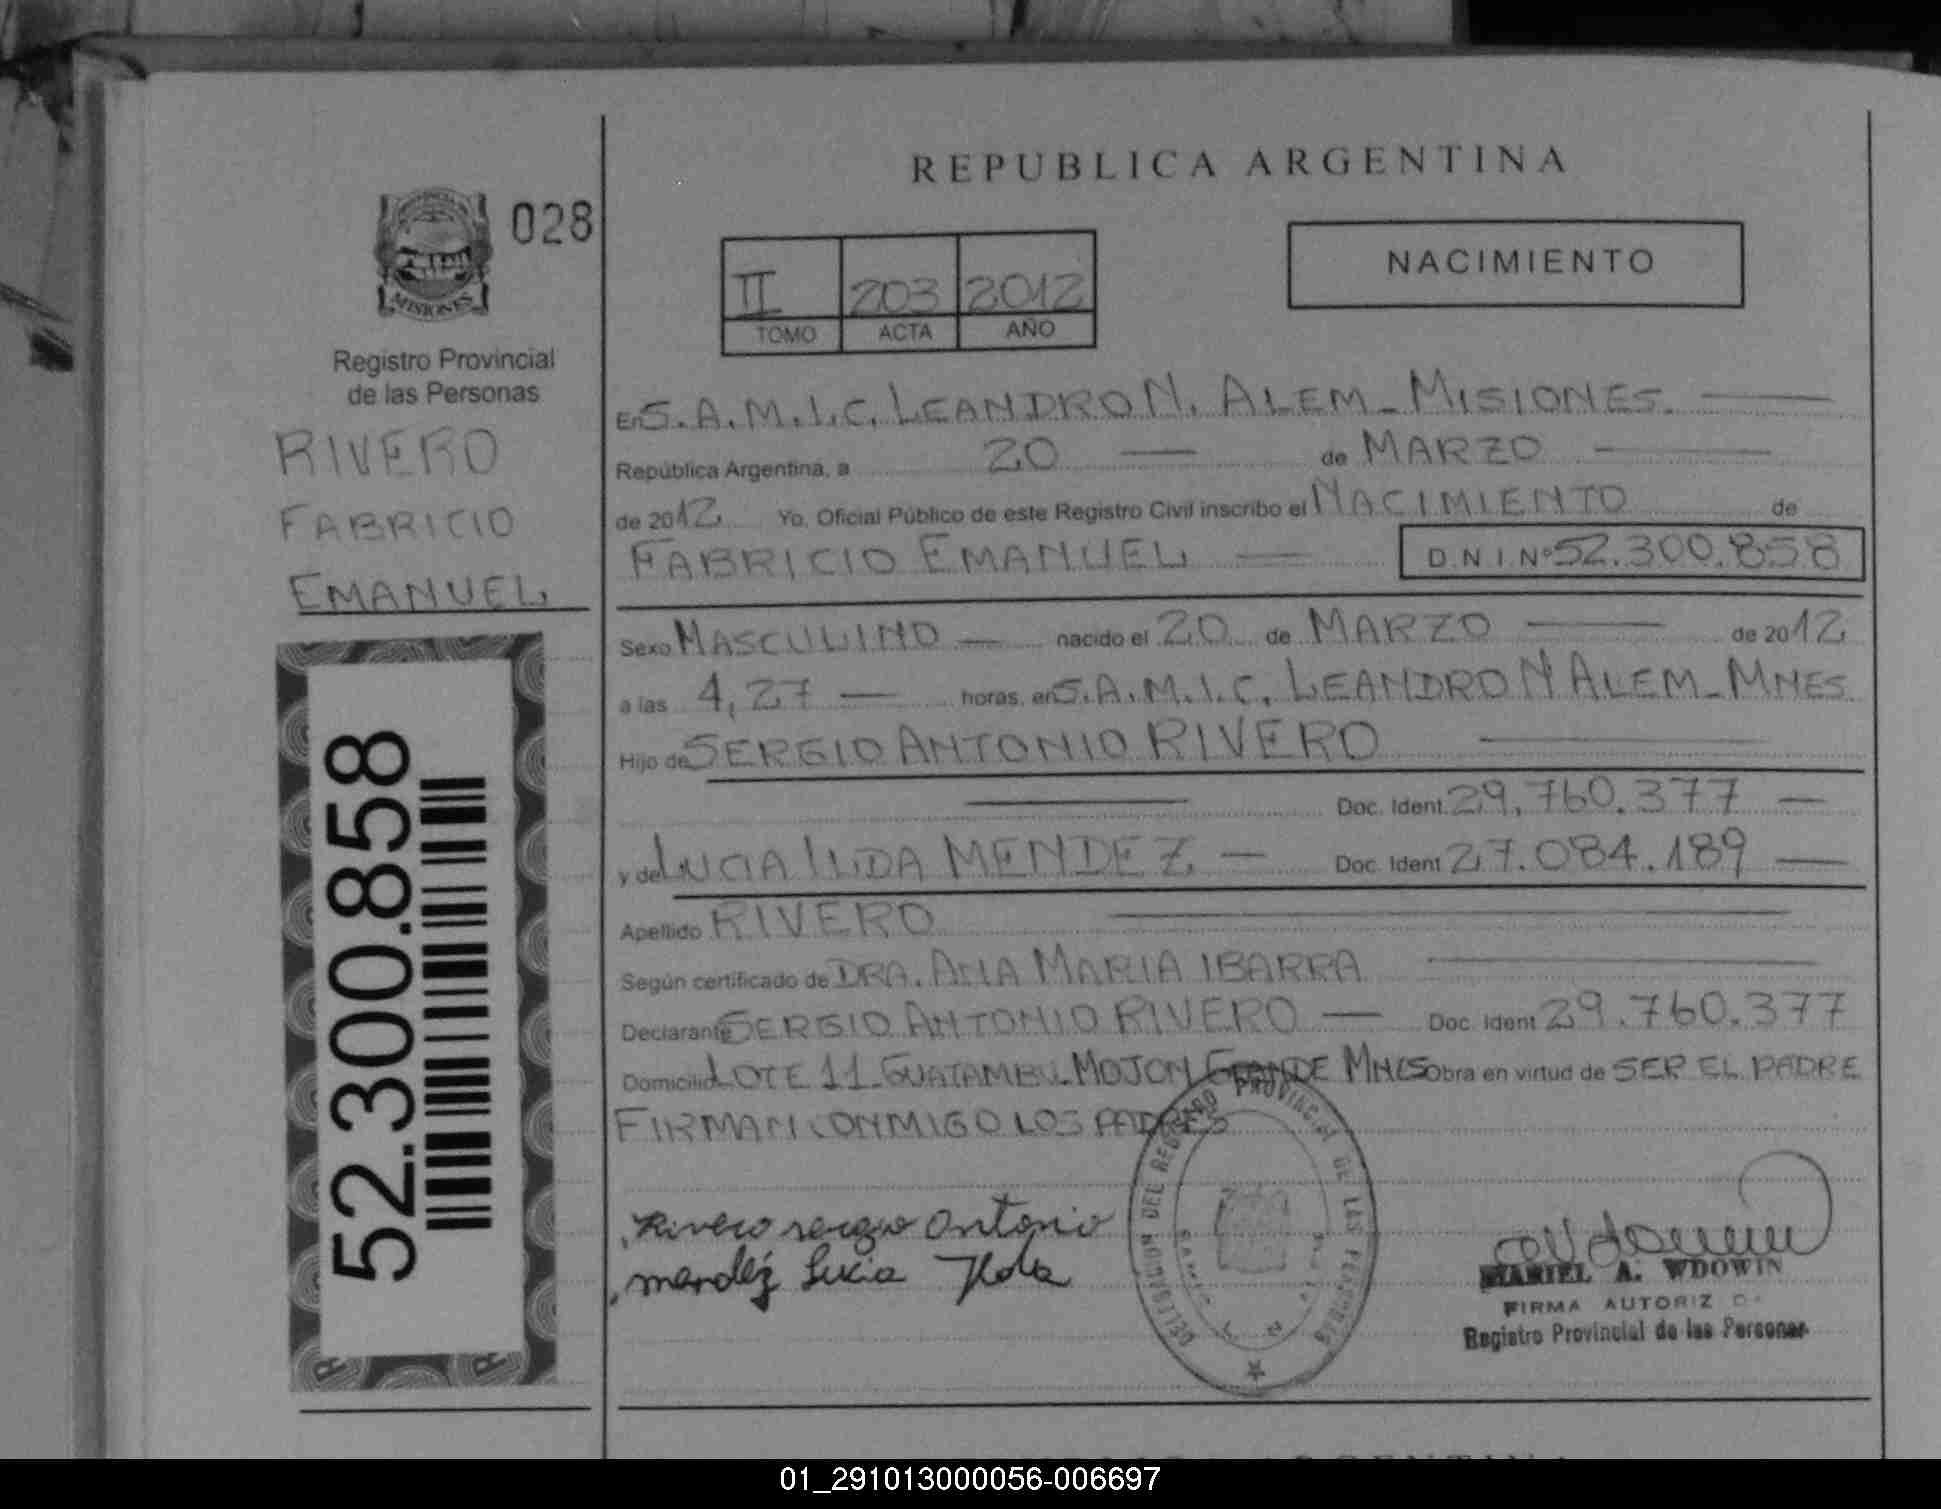 REPUBLICA ARGENTINA
028
MISIONES
Registro Provincial
de las Personas
RIVERO
FABRICIO
EMANUEL
52.300.858
II 203 2012
TOMO ACTA AÑO
NACIMIENTO
En S.A.M.I.C. LEANDRO N. ALEM - MISIONES
República Argentina, a 20 de MARZO
de 2012 Yo, Oficial Público de este Registro Civil inscribo el NACIMIENTO de
FABRICIO EMANUEL D.N.I. Nº 52.300.858
Sexo MASCULINO nacido el 20 de MARZO de 2012
a las 4,27 horas, en S.A.M.I.C. LEANDRO N ALEM - MNES
Hijo de SERGIO ANTONIO RIVERO
Doc. Ident. 29.760.377
y de LUCIA ILDA MENDEZ Doc. Ident 27.084.189
Apellido RIVERO
Según certificado de DRA. ANA MARIA IBARRA
Declarante SERGIO ANTONIO RIVERO Doc. Ident 29.760.377
Domicilio LOTE 11 GUATAMBU - MOJON GRANDE MNES Obra en virtud de SER EL PADRE
FIRMAN CONMIGO LOS PADRES
Rivero sergio Antonio
mendéz Lucia Ilda
DEL REGISTRO PROVINCIAL DE LAS PERSONAS
MARIEL A. WDOWIN
FIRMA AUTORIZ
Registro Provincial de las Personas
01_291013000056-006697